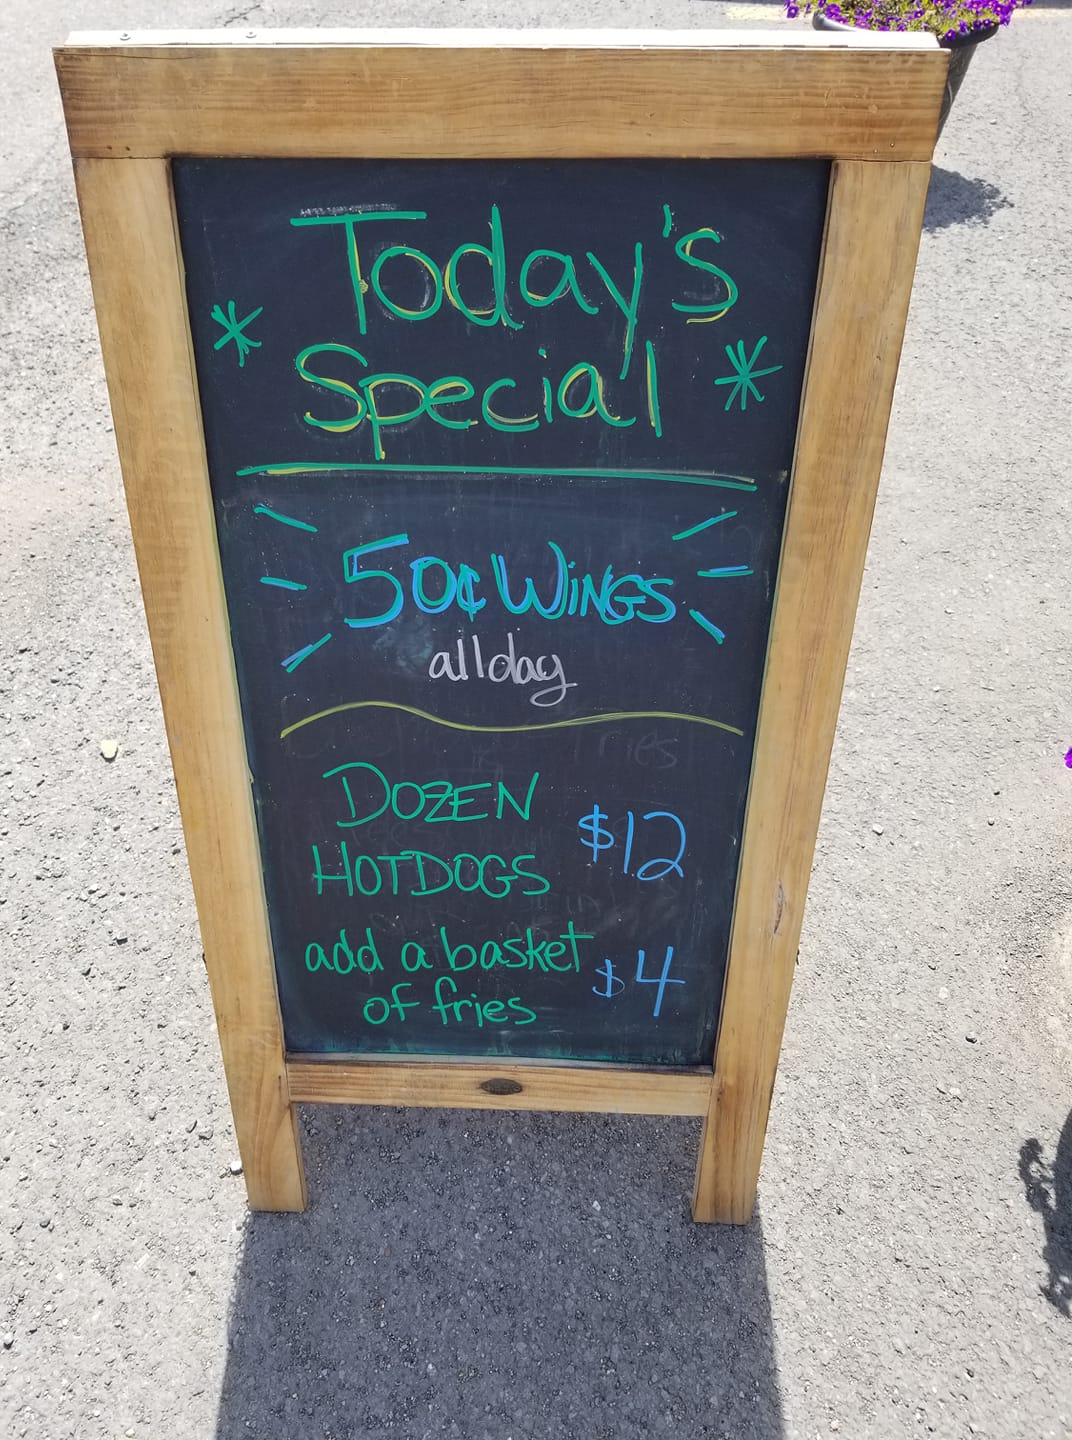 Today's
* Special *
50¢ WiNGS
all day
DOZEN
HOTDOGS $12
add a basket
of fries $4
fries